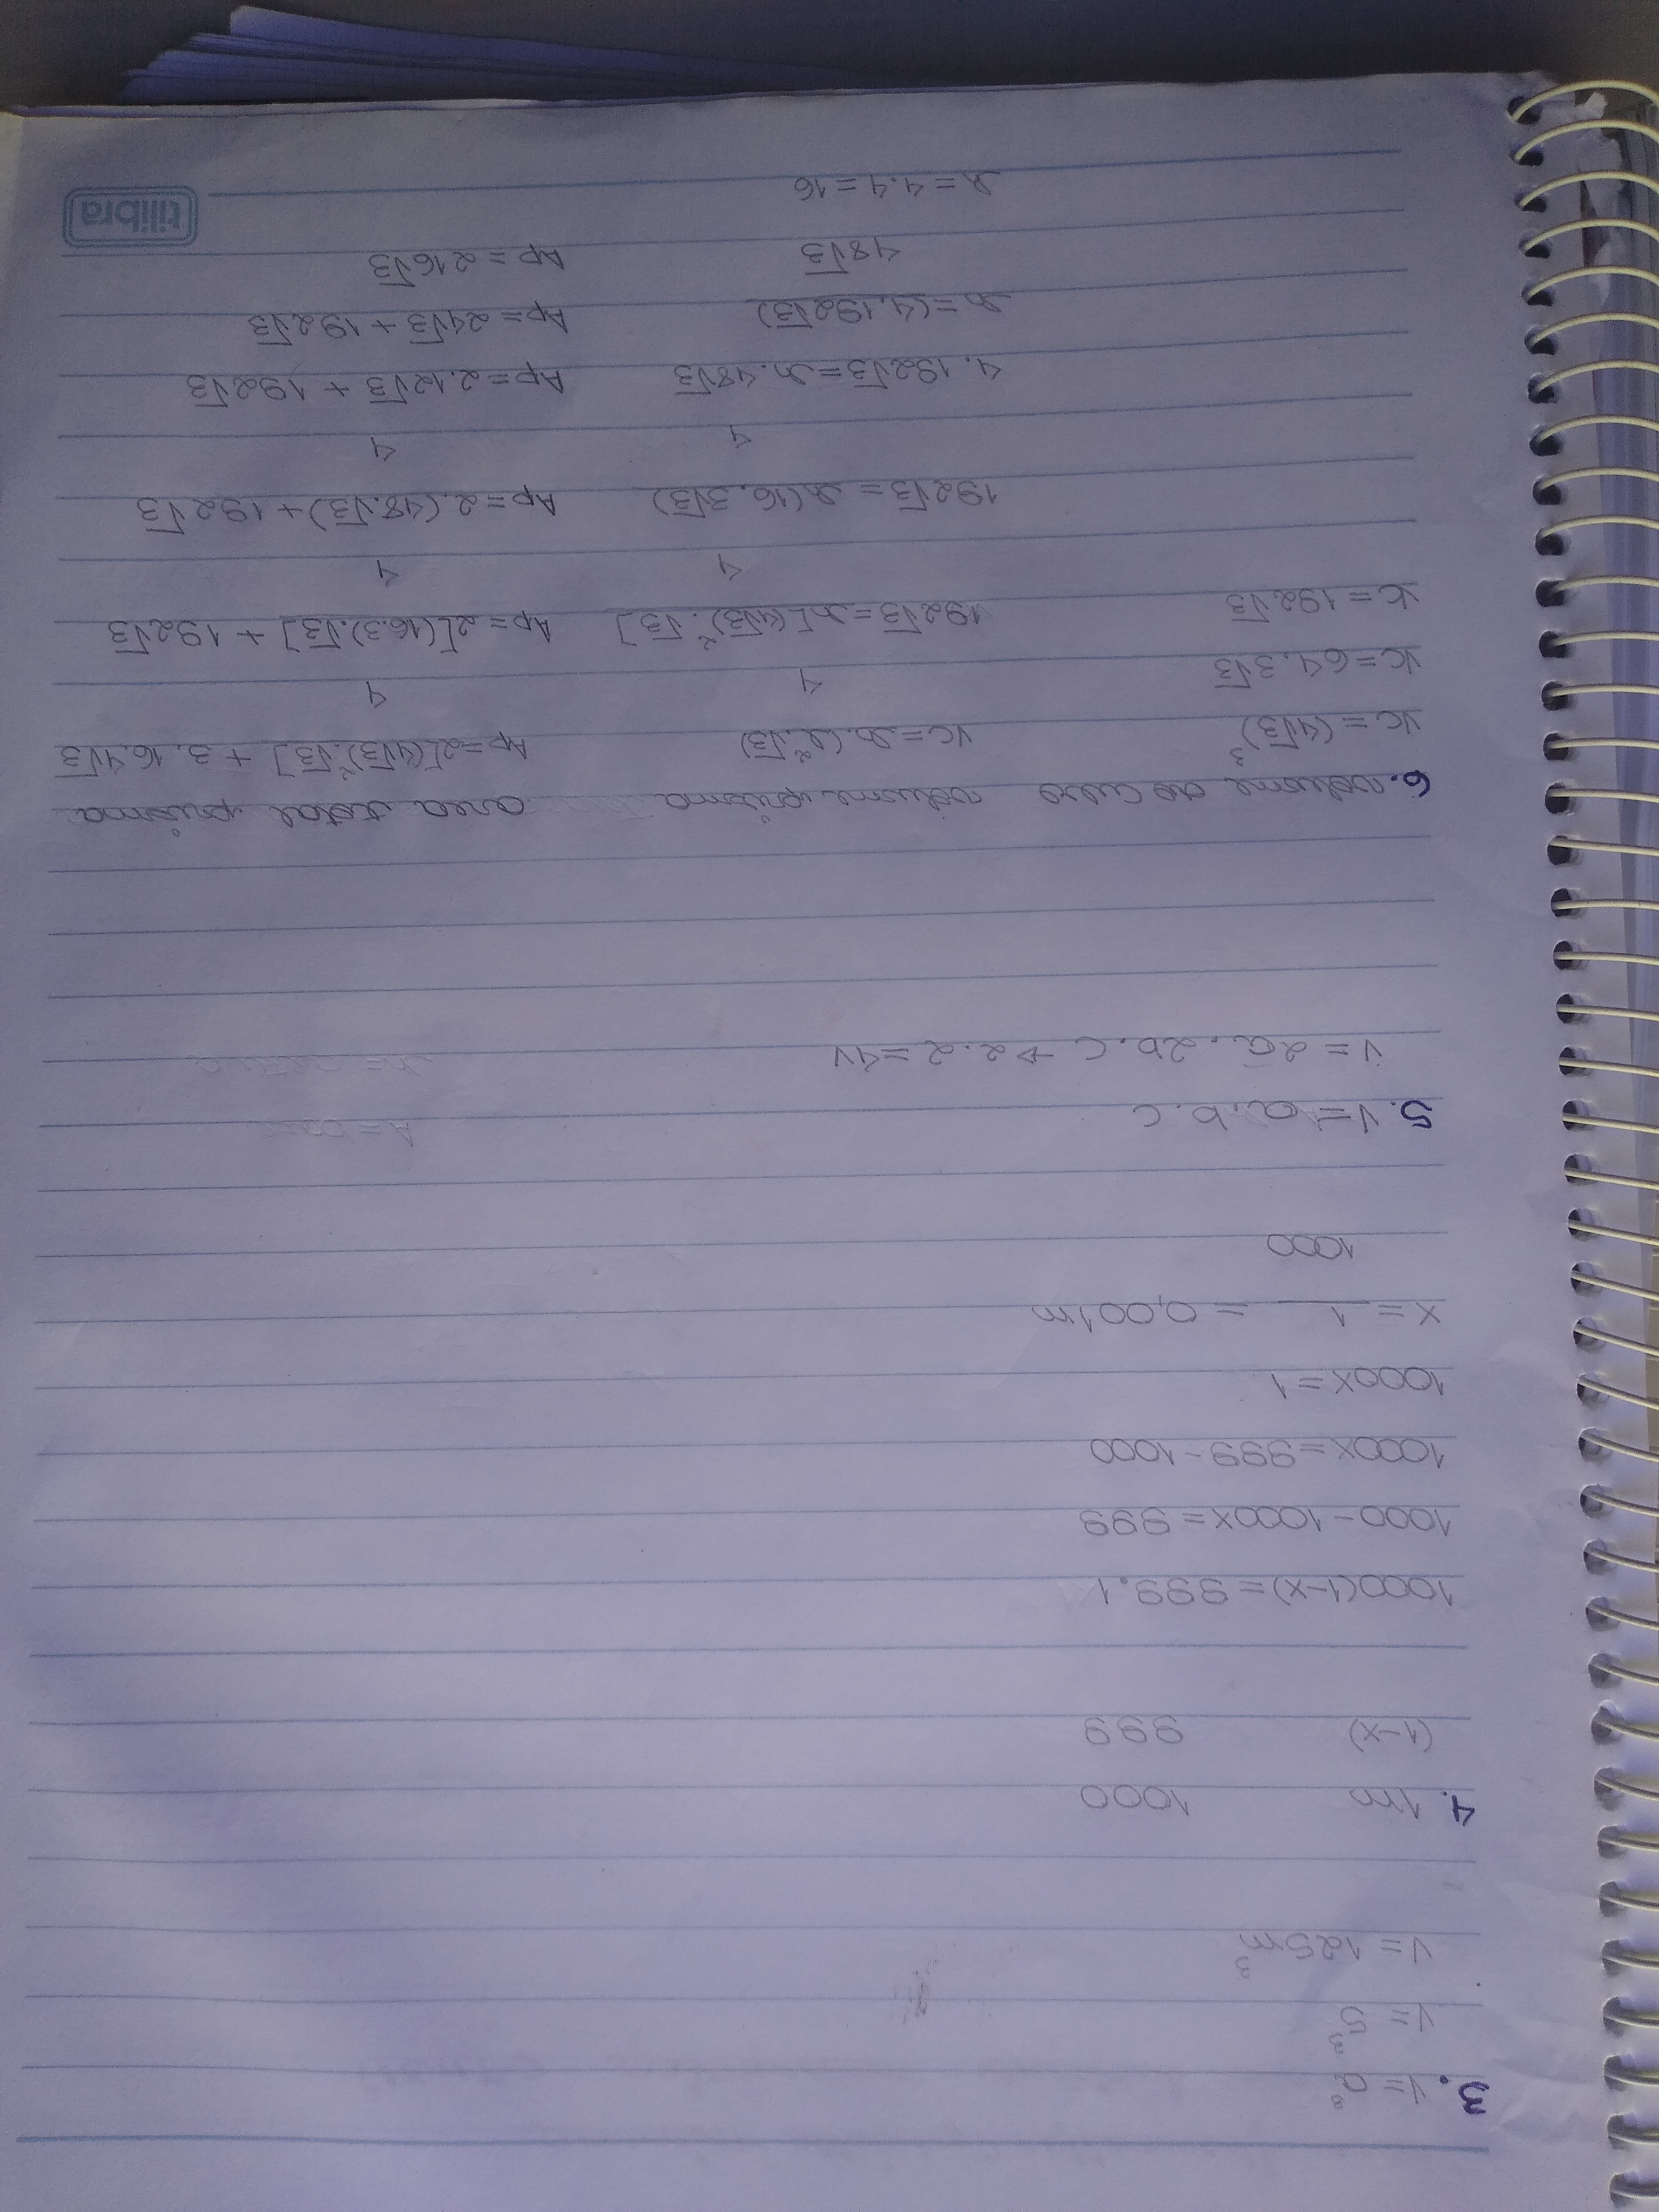 3. V= a³
V= 5³
V= 125m³
4. 1m 1000
(1-x) 999
1000(1-x)= 999.1
1000-1000x= 999
1000x=999-1000
1000x=1
x= 1 = 0,001m
1000
5. V= a.b.c
V= 2a.2b.c → 2.2=4V
6. volume do cubo
Vc=(4√3)³
Vc=64.3√3
Vc=192√3
volume prisma
Vc=h.(l².√3)
4
192√3=h[(4√3)².√3]
4
192√3= h(16.3√3)
4
4.192√3=h.48√3
h=(4.192√3)
48√3
h=4.4=16
area total prisma
Ap=2[(4√3)².√3] + 3.16.4√3
4
Ap=2[(16.3).√3] + 192√3
4
Ap=2.(48.√3)+192√3
4
Ap=2.12√3 + 192√3
Ap= 24√3+192√3
Ap= 216√3
tilibra